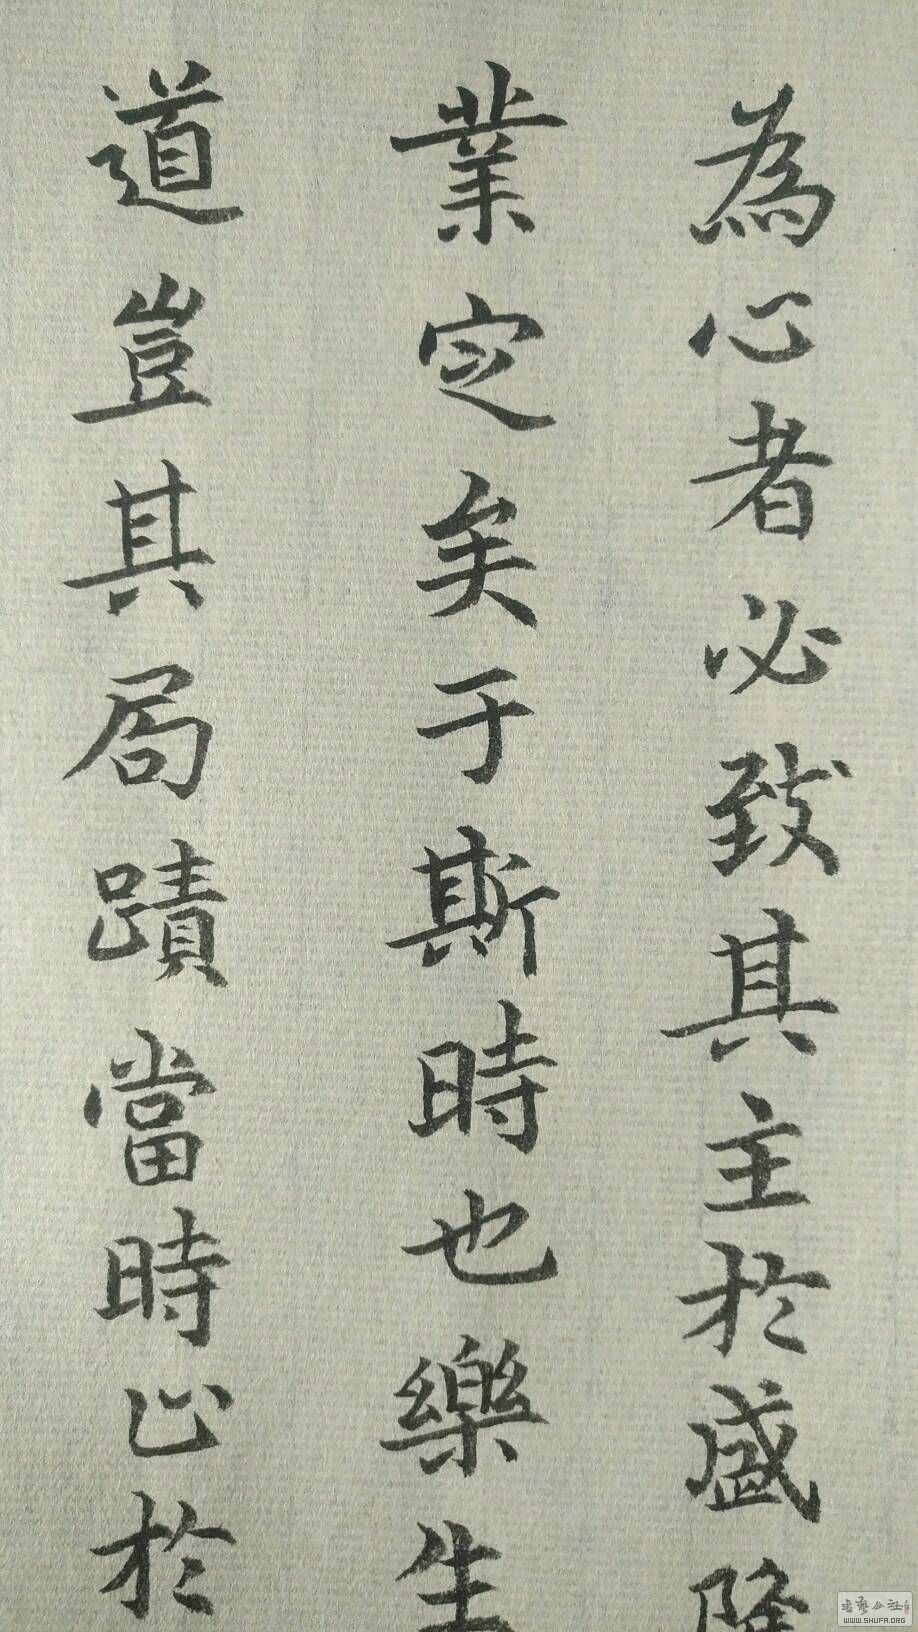 為心者必致其主於盛隆
業定矣于斯時也樂生
道豈其局蹟當時止於
书艺公社
WWW.SHUFA.ORG